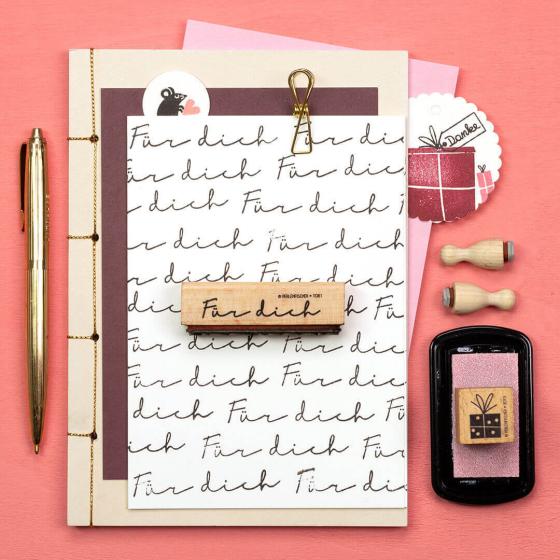 Für dich Für dich
Für dich Für dich
dich Für dich Für
Danke
r dich Für dich
Für dich Für dich
dich Für dich Für
Für dich
Für dich Für dich
Für dich Für dich
dich Für dich Für
ich Für dich Fü
Für dich Für dic